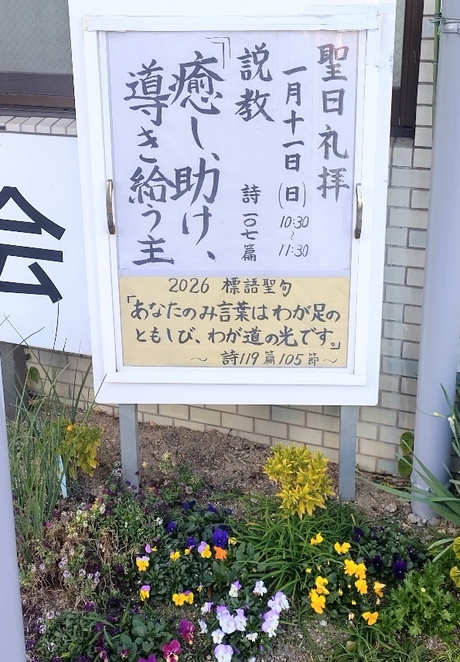 聖日礼拝
一月十一日(日)10:30~11:30
説教 詩一〇七篇
「癒し、助け、
導き給う主
2026 標語聖句
「あなたのみ言葉はわが足の
ともしび、わが道の光です。」
~詩119篇105節~
会